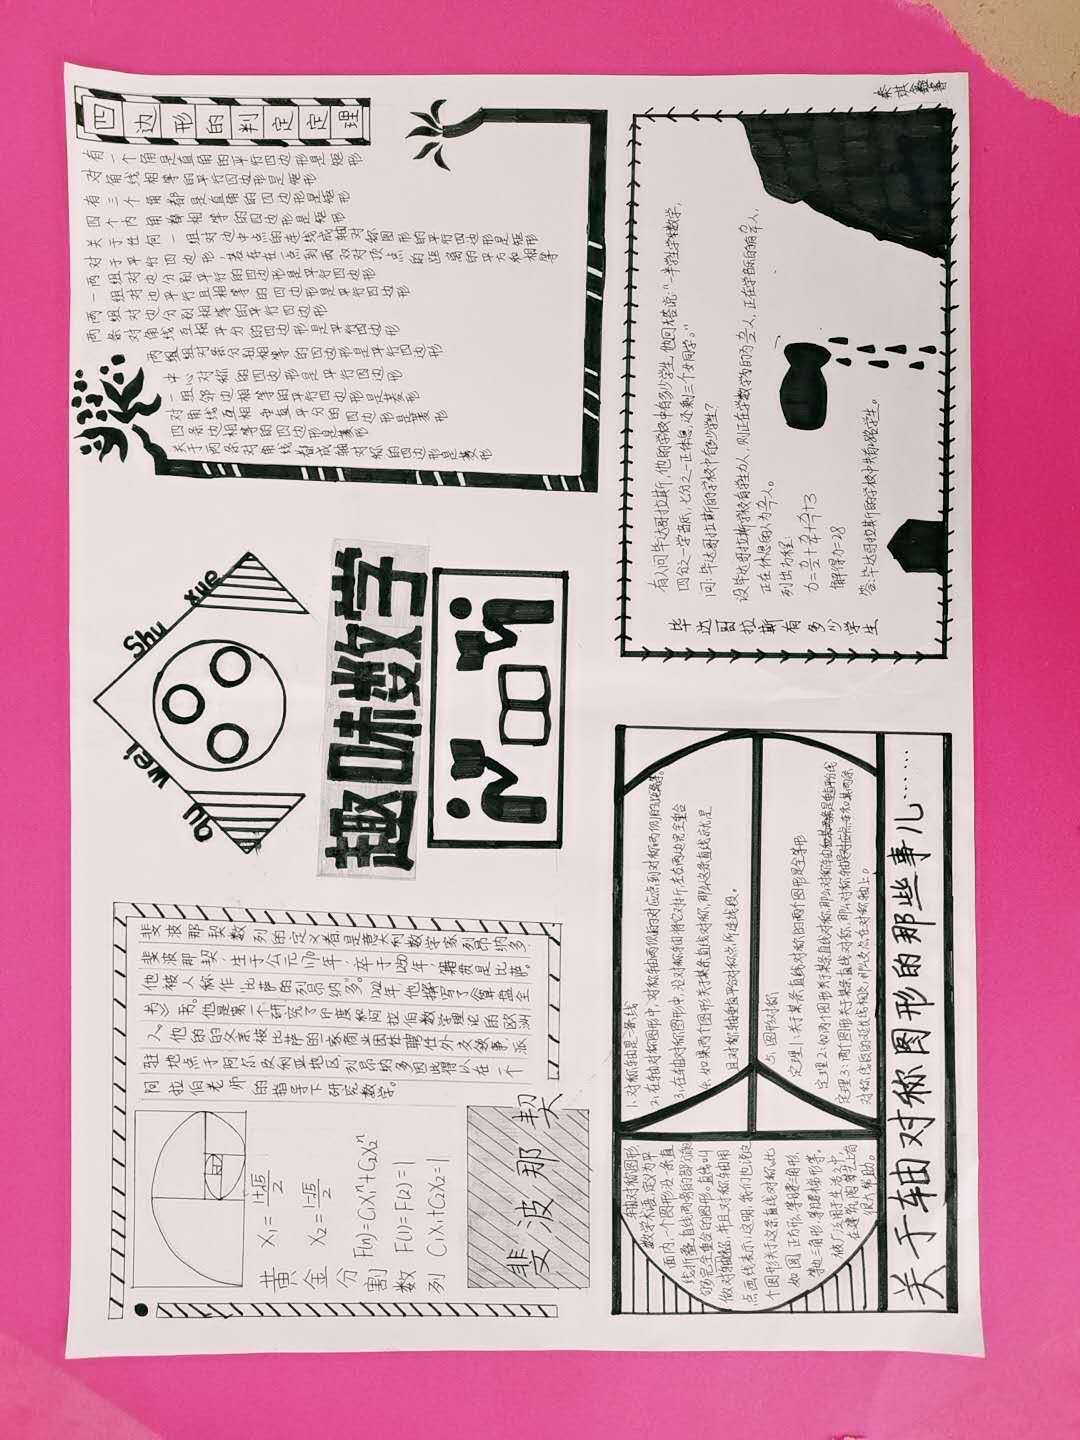 黄金分割数列
X₁=(1+√5)/2
X₂=(1-√5)/2
F(n)=C₁X₁ⁿ+C₂X₂ⁿ
F(1)=F(2)=1
C₁X₁+C₂X₂=1
斐波那契
斐波那契数列的定义者,是意大利数学家列昂纳多·
斐波那契,生于公元1170年,卒于1250年,籍贯是比萨。
他被人称作“比萨的列昂纳多”。1202年他撰写了《算盘全
书》一书。他是第一个研究了印度和阿拉伯数学理论的欧洲
人。他的的父亲被比萨的一家商业团体聘任外交领事,派
驻地点于阿尔及利亚地区列昂纳多因此得以在一个
阿拉伯老师的指导下研究数学。
qu wei shu xue
趣味数学
四边形的判定定理
有一个角是直角的平行四边形是矩形
对角线相等的平行四边形是矩形
有三个角都是直角的四边形是矩形
四个内角都相等的四边形是矩形
关于任何一组对边中点的连线成轴对称图形的平行四边形是矩形
对于平行四边形,若存在一点到两双对顶点的距离的平方和相等
一两组对边分别平行的四边形是平行四边形
一组对边平行且相等的四边形是平行四边形
两组对边分别相等的平行四边形
两条对角线互相平分的四边形是平行四边形
两组对角分别相等的四边形是平行四边形
中心对称的四边形是平行四边形
一组邻边相等的平行四边形是菱形
对角线互相垂直平分的四边形是菱形
四条边相等的四边形是菱形
关于两条对角线都成轴对称的四边形是菱形
轴对称图形,
数学术语,定义为平
面内,一个图形沿一条直
线折叠,直线两旁的部分能
够完全重合的图形。直线叫
做对称轴,并且对称轴用
点画线表示;这时,我们也说这
个图形关于这条直线对称。比
如圆、正方形、等腰三角形、
等边三角形、等腰梯形等。
被广泛用于生活之中,
在建筑,商标等上有
很大帮助。
1.对称轴是一条线
2.在轴对称图形中,对称轴两侧的对应点到对称轴两侧的距离相等。
3.在轴对称图形中,沿对称轴将它对折,左右两边完全重合
4.如果两个图形关于某条直线对称,那么这条直线就是
且对称轴垂直平分对称点所连线段。
5.图形对称
定理1:关于某条直线对称的两个图形是全等形
定理2:如两个图形关于某条直线对称,那么对称轴
定理3:两个图形关于某条直线对称,那么对称轴是
对称线段的延长线相交,那么交点在对称轴上。
关于轴对称图形的那些事儿……
毕达哥拉斯有多少学生
有人问毕达哥拉斯,他的学校中有多少学生,他回答说:“一半学生学数学,
四分之一学音乐,七分之一正休息,还剩三个女同学。”
问:毕达哥拉斯的学校中有多少学生?
正在休息的人为 人。
列出方程:
解得 =28
答:毕达哥拉斯的学校中共有28名学生。